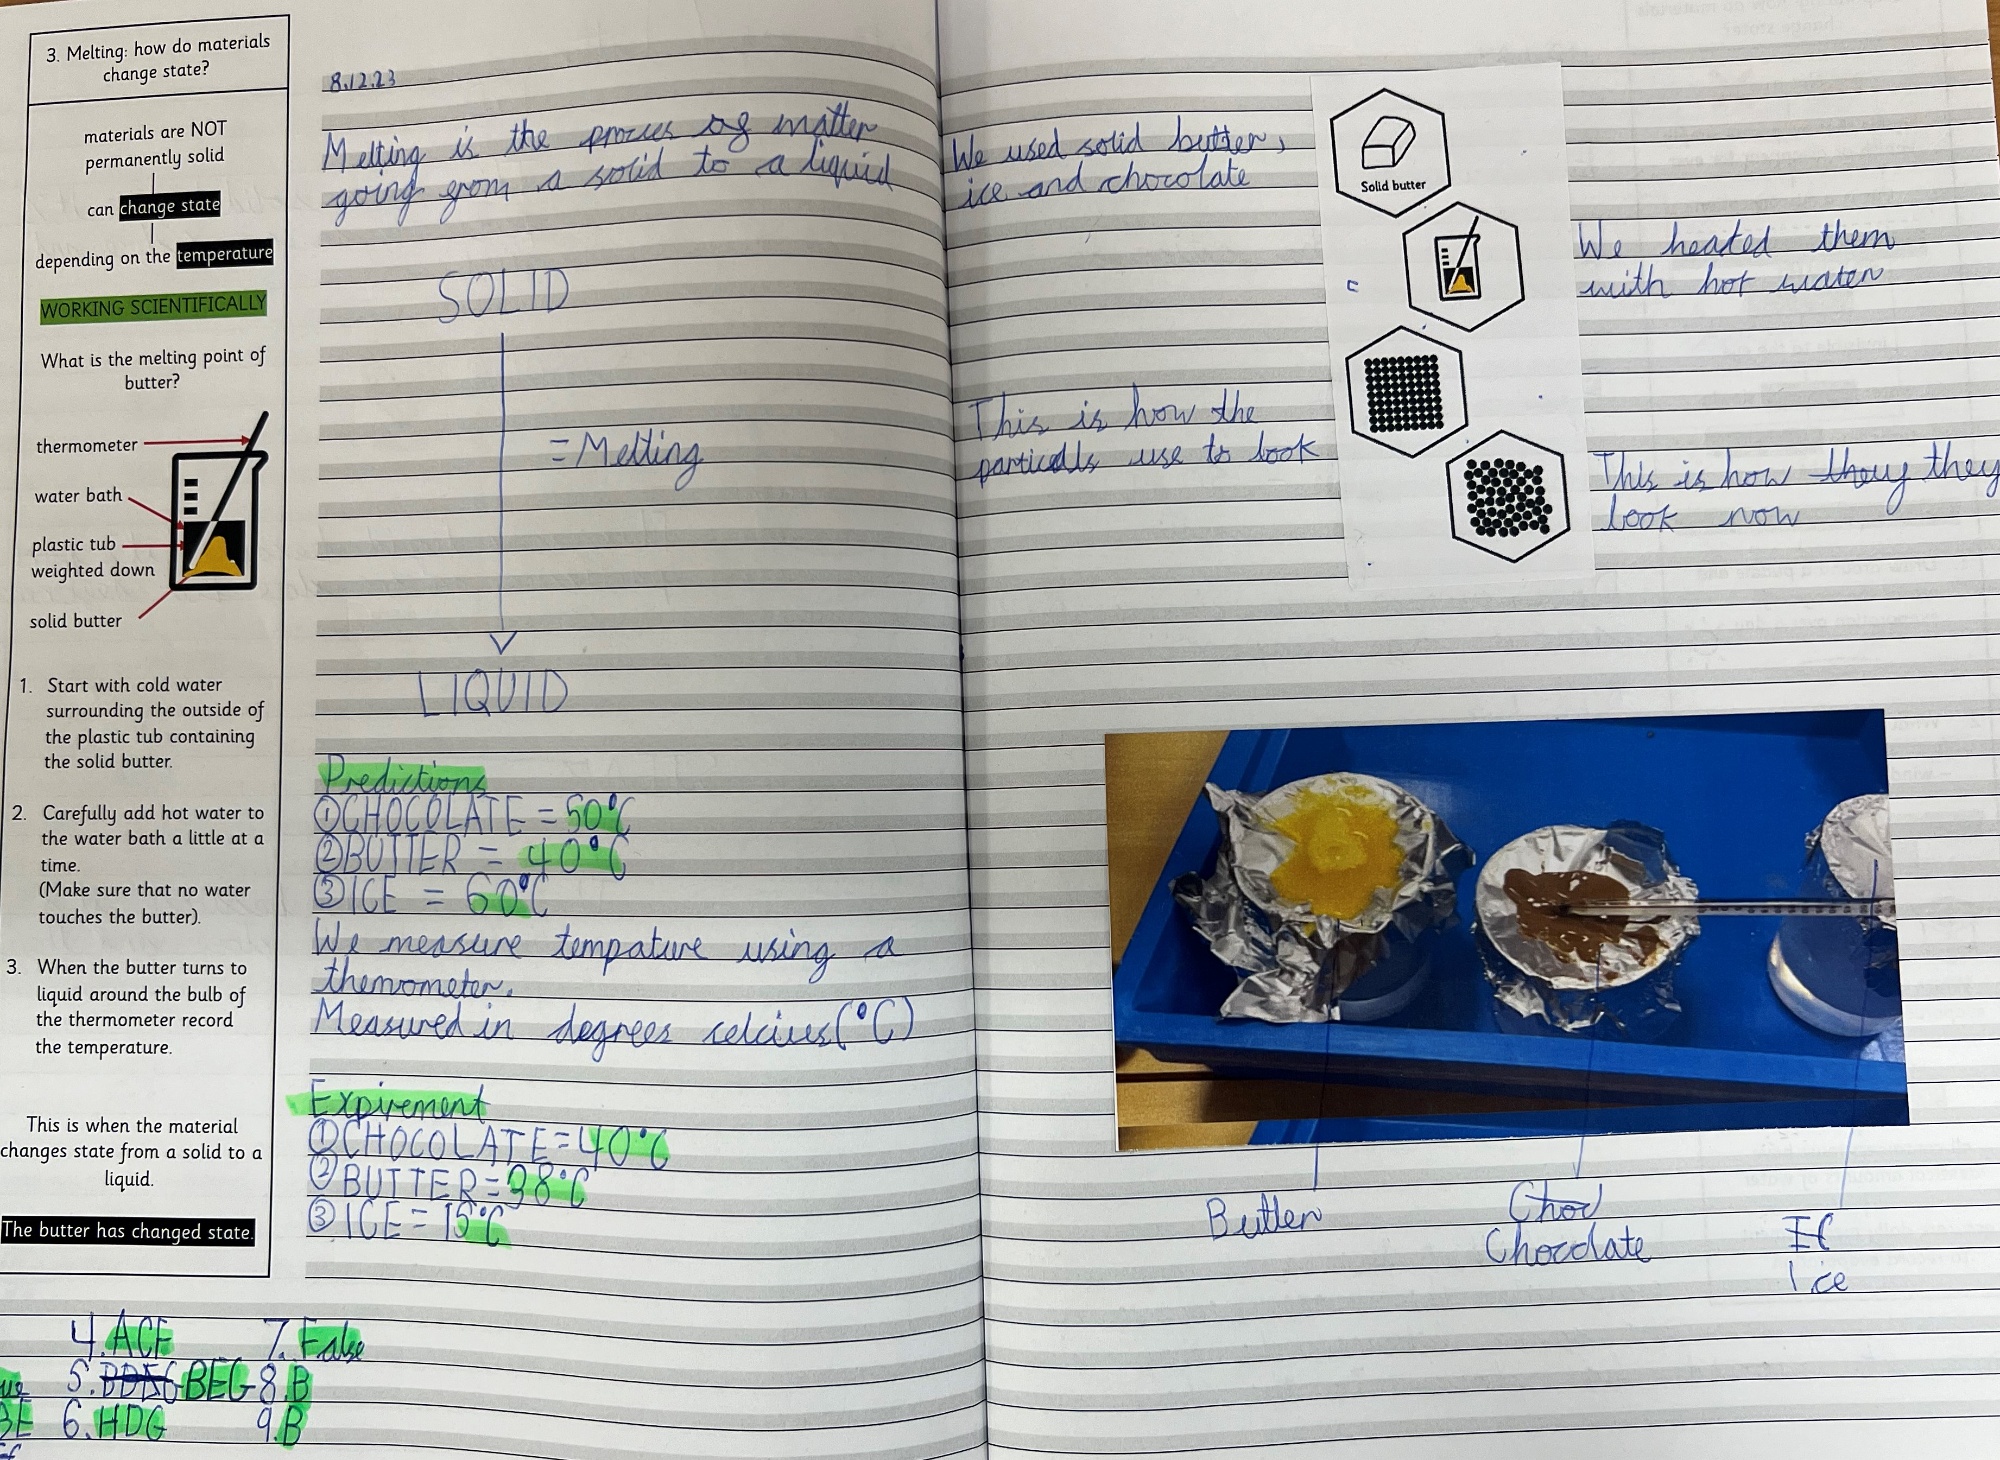 3. Melting: how do materials
change state?
materials are NOT
permanently solid
can change state
depending on the temperature
WORKING SCIENTIFICALLY
What is the melting point of
butter?
thermometer
water bath
plastic tub
weighted down
solid butter
1. Start with cold water
surrounding the outside of
the plastic tub containing
the solid butter.
2. Carefully add hot water to
the water bath a little at a
time.
(Make sure that no water
touches the butter).
3. When the butter turns to
liquid around the bulb of
the thermometer record
the temperature.
This is when the material
changes state from a solid to a
liquid.
The butter has changed state.
8.12.23
Melting is the proces of matter
going from a solid to a liquid
SOLID
= Melting
LIQUID
Predictions
① CHOCOLATE = 50°C
② BUTTER = 40°C
③ ICE = 60°C
We measure tempature using a
themometer.
Measured in degrees celcius (°C)
Expirement
① CHOCOLATE = 40°C
② BUTTER = 38°C
③ ICE = 15°C
4. ACF 7. False
BEG 8. B
6. HDG 9. B
We used solid butter,
ice and chocolate
Solid butter
We heated them
with hot water
This is how the
particalls use to look
This is how they they
look now
Butter
Choc
Chocolate
Ic
Ice